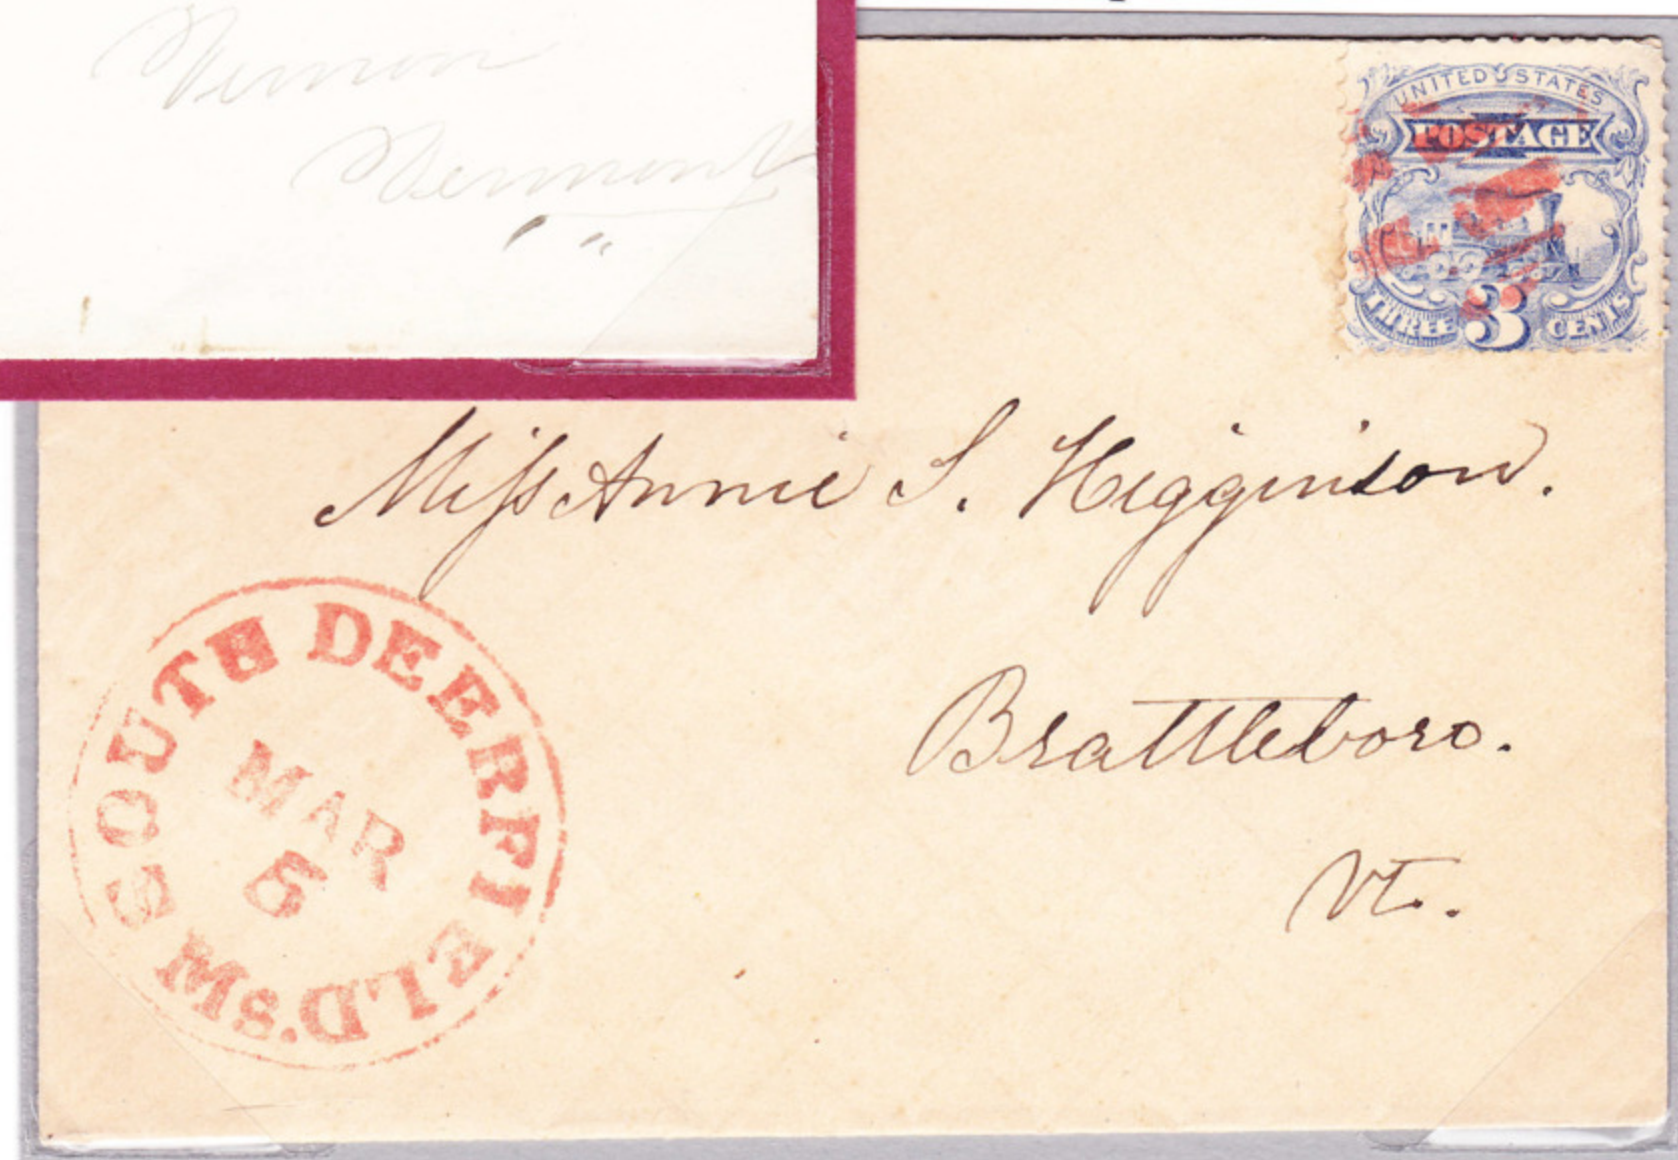 Vernon
Vermont
UNITED STATES
POSTAGE
THREE 3 CENTS
Miss Annie S. Higginson.
Brattleboro.
Vt.
SOUTH DEERFIELD. Ms.
MAR
5